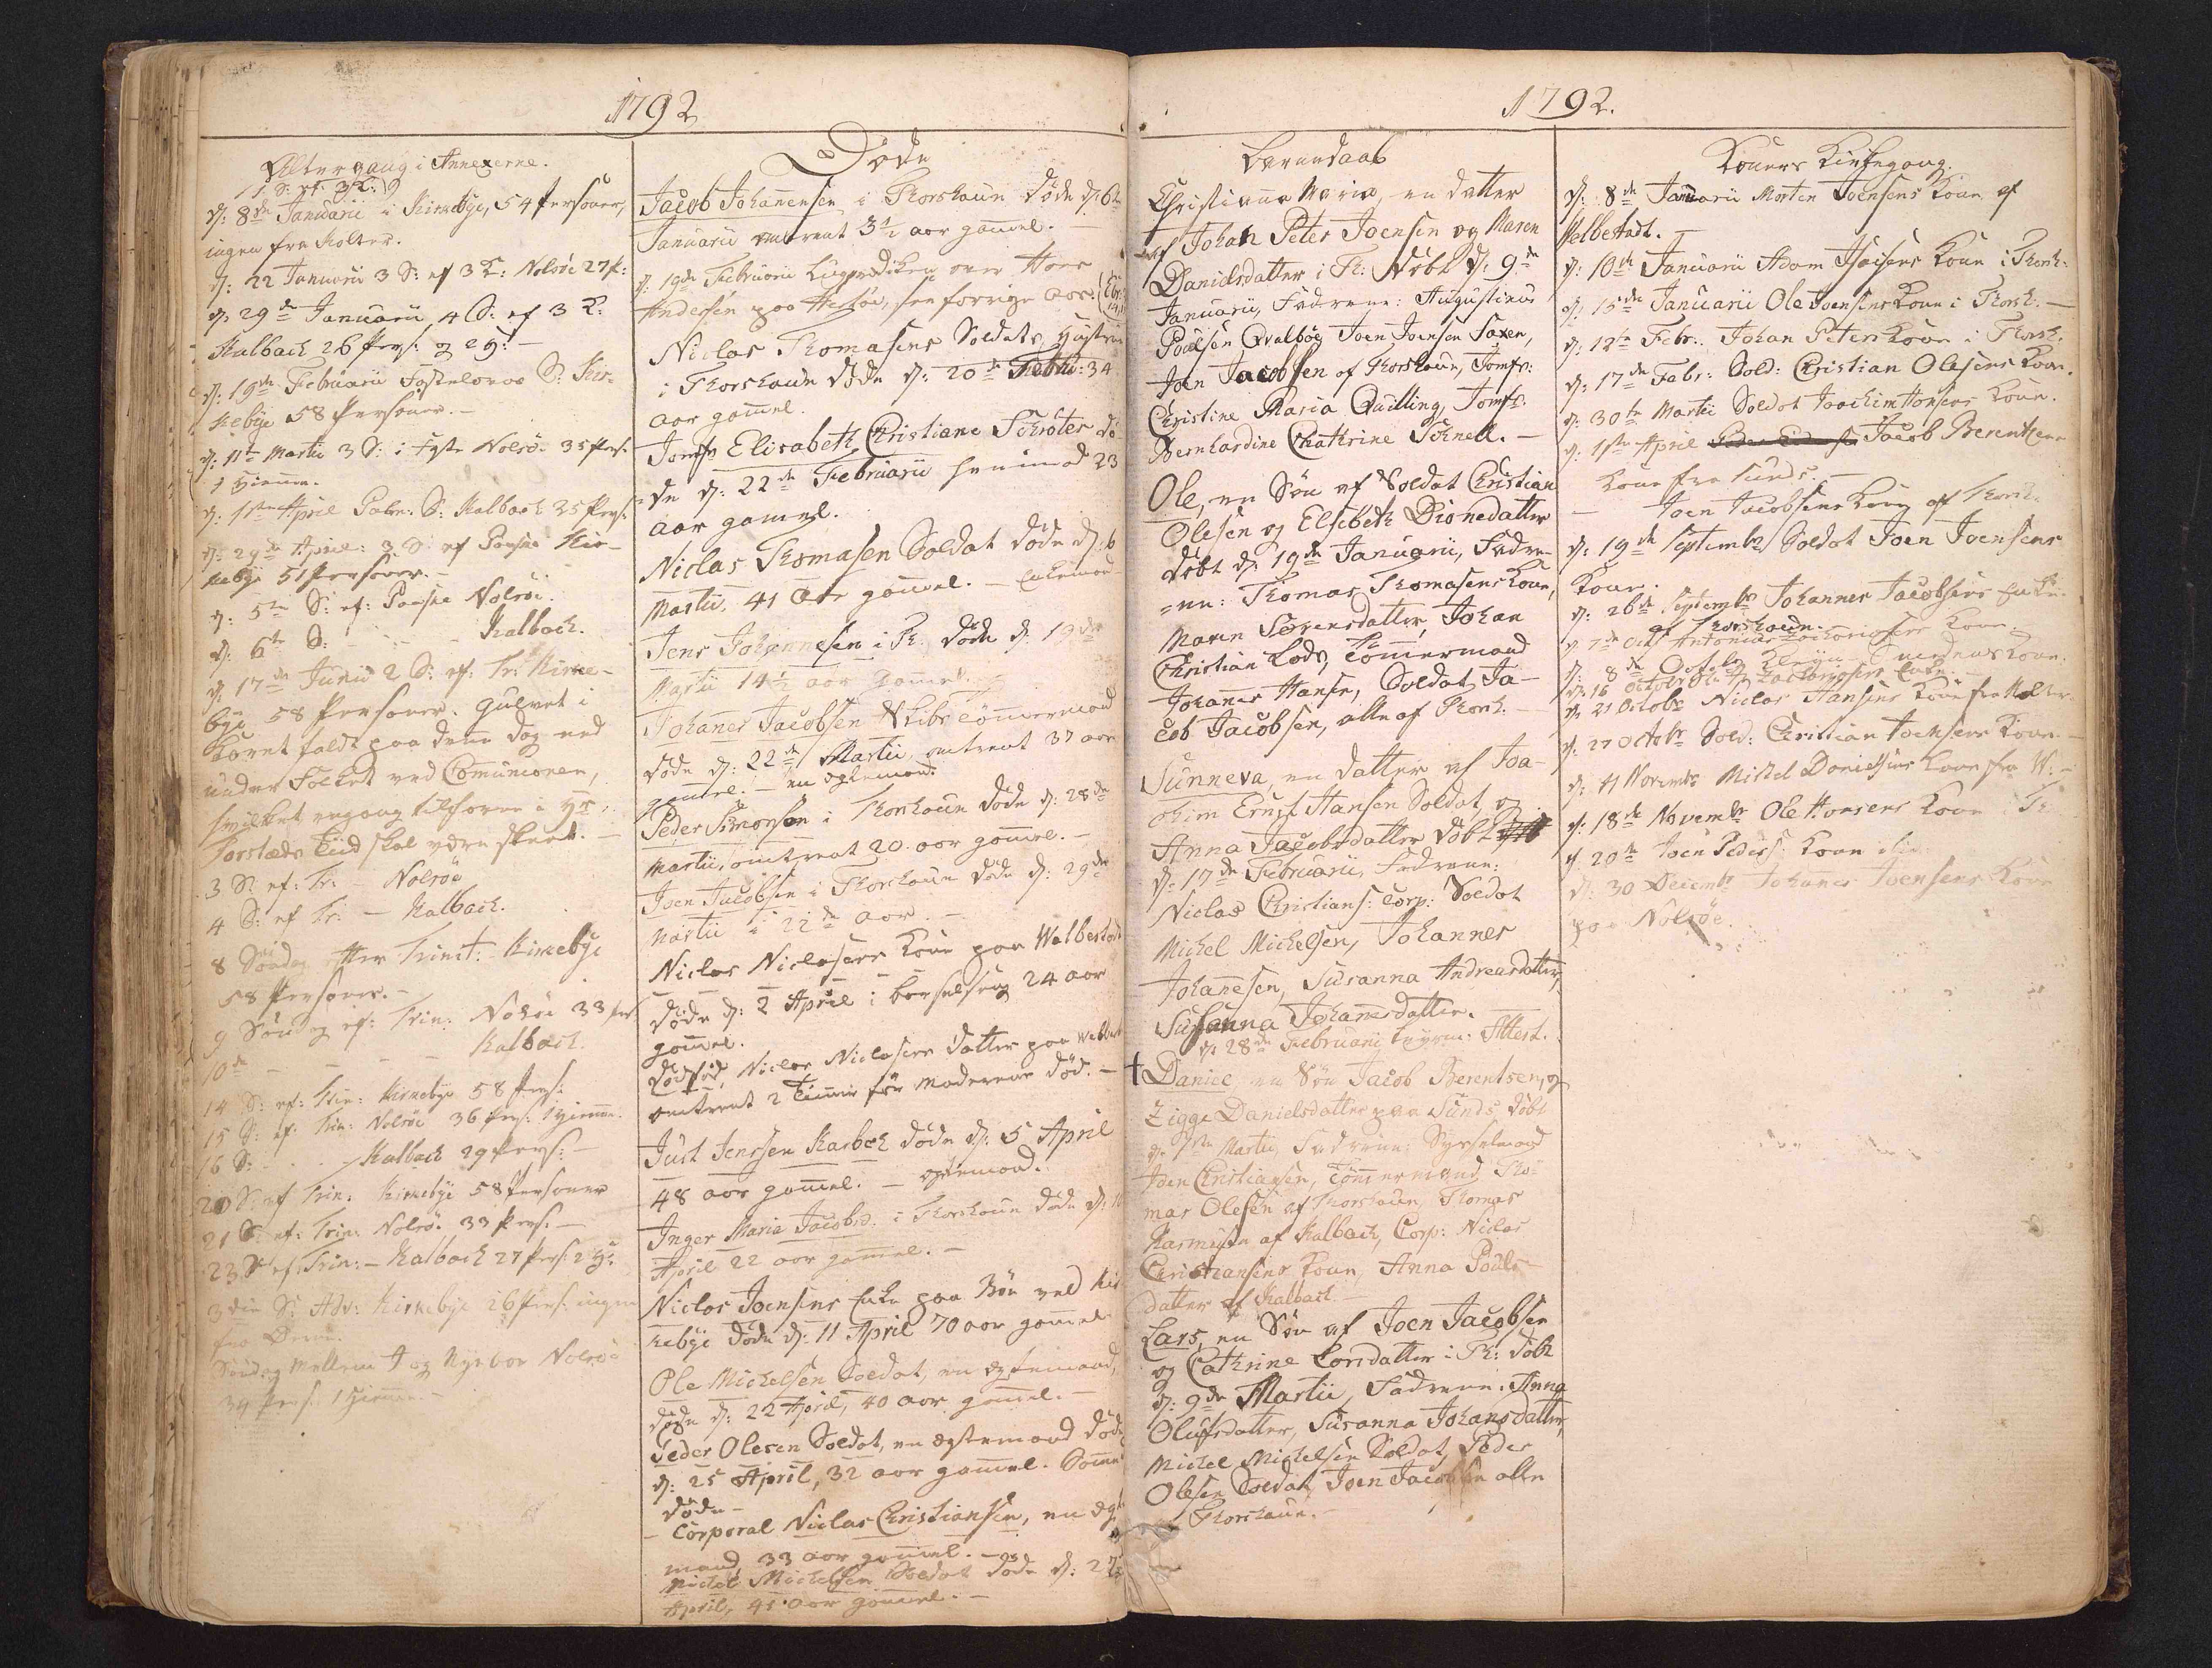 1792
Altergang i Annexerne.
1 S: ef: 3 K:
d: 8de Januarii i Kirkebye, 54 Personer,
ingen fra Kolter.
d: 22 Januarii 3 S: ef 3 K: Nolsöe 27 P:
d: 29de Januarii 4 S: ef 3 K:
Kalbach 26 Pers:
d: 19de Februarii Fastelavns S: Kir-
kebye 58 Personer. -
d: 11te Martii 3 S: i Faste Nolsöe 35 Pers:
1 Hiemme.
d: 1ste April Palm: S: Kalbach 35 Pers:
d: 29de April: 3 S: ef Paaske Kir-
kebye 51 Personer. -
d: 5te S: ef: Paaske Nolsöe.
d: 6te S: - - - Kalbach.
d: 17de Junii 2 S: ef: Tr: Kirke-
bye 58 Personer. Gulvet i
Koret faldt paa denne dag ned
under Folket ved Communionen,
hvilket engang tilforne i Hr:
Forslæds Tiid skal være skeet. -
3 S: ef: Tr: - Nolsöe
4 S: ef Tr: - Kalbach.
8 Söndag efter Trinit: Kirkebye
58 Personer. -
9 Söndag ef: Trin: Nolsöe 33 Pers
10de - - - Kalbach.
14 S: ef: Trin: Kirkebye 58 Pers:
15 S: ef: Trin: Nolsöe 36 Pers: 1 Hiemme.
16 S: - - - Kalbach 29 Pers: -
20 S: ef Trin: Kirkebye 58 Personer
21 S: ef: Trin: Nolsöe 33 Pers: -
23 S: ef: Trin: - Kalbach 27 Pers: 2 H:
3die S: Adv: Kirkebye 26 Pers: ingen
fra
Söndag Mellem J og Nyeaar Nolsöe
34 Pers: 1 Hiemme. -
Döde
Jacob Johannensen i Thorshavn döde d: 6te
Januarii omtrent 3½ aar gammel. -
d: 19de Februarii Liigprædiken over Hans
Andersen paa Hestöe, see forrige Aar.
Niclas Thomasens Soldats Hustrue
i Thorshavn döde d: 20de Febru: 34
aar gammel.
Jomfr Elisabeth Christiane Schröter dö-
de d: 22de Februarii henimod 23
aar gammel.
Niclas Thomasen Soldat döde d: 6
Martii, 41 Aar gammel. - Enkemand
Jens Johannesen i Th: döde d: 19de
Martii 14½ aar gammel.
Johannes Jacobsen Skibstömmermand
döde d: 22de Martii omtrent 37 aar
gammel. - en Egtemand.
Peder Simonsen i Thorshavn döde d: 28de
Martii, omtrent 20 aar gammel. -
Joen Jacobsen i Thorshavn döde d: 29de
Martii i 22de aar. -
Niclas Niclasens Kone paa Welbestad
döde d: 2 April i barselseng 24 aar
gammel.
Dödföd, Niclas Niclasens datter paa Welbest
omtrent 2 Timer för Moderens död. -
Just Jenssen Kasbech döde d: 5 April
48 aar gammel. - egtemand.
Inger Maria Jacobsd: i Thorshavn döde d: 10
April 22 aar gammel. -
Niclas Joensens Enke paa Bön ved Kir
kebye döde d: 11 April 70 aar gammel
Ole Michelsen Soldat, en egtemand,
döde d: 22 April, 40 aar gammel. -
Peder Olesen Soldat, en egtemand döde
d: 25 April, 32 aar gammel. Samme
döde -
- Corporal Niclas Christiansen, en egte
mand, 33 aar gammel. -
Michel Michelsen Soldat döde d: 27
April, 41 aar gammel. -
1792.
Barnedaab
Christiana Maria, en datter
af Johan Peter Joensen og Maren
Danielsdatter i Th: döbt d: 9de
Januarii, Fadrene: Augustinus
Poulsen Qvalböe, Joen Joensen Saxen,
Joen Jacobsen af Thorshavn, Jomfr:
Christine Maria Quilling, Jomfr:
Bernhardine Chathrine Schnell. -
Ole, en Sön af Soldat Christian
Olesen og Elsebeth Dionedatter
döbt d: 19de Januarii, Fadre-
=ne: Thomas Thomasens Kone,
Maren Sörensdatter, Johan
Christian Lods, Tömmermand
Johannes Hansen, Soldat Ja-
cob Jacobsen, alle af Thorsh. -
Sunneva, en datter af Joa-
chim Ernst Hansen Soldat og
Anna Jacobsdatter döbt
d: 17de Februarii, Fadrene:
Niclas Christians: Corp: Soldat
Michel Michelsen, Johannes
Johannesen, Susanna Andreasdatter,
Susanna Johansdatter.
d: 28de Februarii Attest.
† Daniel en Sön Jacob Berentsen, og
Zigge Danielsdatter paa Sunds döbt
d: 1ste Martii, Fadrene: Sysselmand
Joen Christiansen, Tömmermand Tho-
mas Olesen af Thorshavn, Thomas
Rasmusen af Kalbach, Corp: Niclas
Christiansens Kone, Anna Pouls-
datter af Kalbach. -
Lars, en Sön af Joen Jacobsen
og Cathrine Larsdatter i Th: döbt
d: 9de Martii, Fadrene: Anna
Olufsdatter, Susanna Johansdatter,
Michel Michelsen Soldat, Peder
Olesen Soldat, Joen Jacobsen alle
Thorshavn. -
Koners Kirkegang.
d: 8de Januarii Morten Joensens Kone af
Velbestadt. -
d: 10de Januarii Adam Isacsens Kone i Thorsh:
d: 15de Januarii Ole Joensens Kone i Thorsh. -
d: 12te Febr: Johan Peters Kone i Thorsh.
d: 17de Febr: Sold: Christian Olesens Kone.
d: 30te Martii Soldat Joachim Hansens Kone.
d: 1ste April Jacob Berentsens
Kone fra Sunds. -
- Joen Jacobsens Kone af Thorsh.
d: 19de Septembr Soldat Joen Joensens
Kone.
d: 26de Septembr Johannes Jacobsens Enke
af Thorshavn.
d: 7de Octbr Antonius Zachariasens Kone.
d: 8de Octobr Kone.
d: 16 October Zachariasens Enke
d: 21 Octobr Niclas Hansens Kone fra Kolter.
d: 27 Octobr Sold: Christian Jochsens Kone. -
d: 11 Novembr Michel Danielsens Kone fra W: -
d: 18de Novembr Ole Hansens Kone i Th:
d: 20de Joen Peders: Kone
d: 30 Decembr Johannes Joensens Kone
paa Nolsöe.